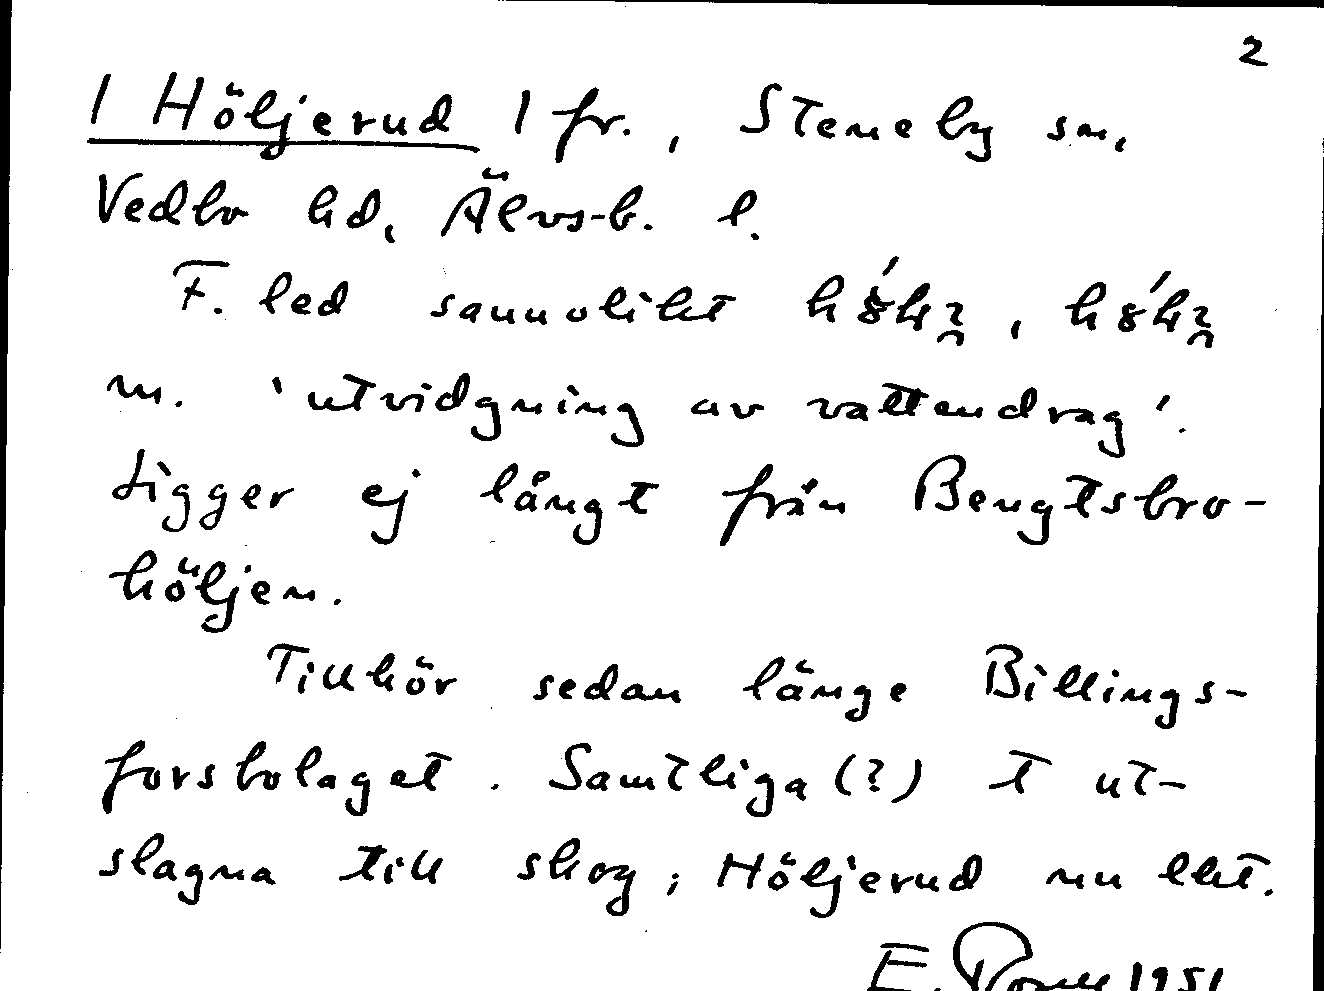 2
1 Höljerud 1 fr., Steneby sn,
Vedbo hd, Älvs-b. l.
F. led sannolikt
m. 'utvidgning av vattendrag'.
Ligger ej långt från Bengtsbro-
höljen.
Tillhör sedan länge Billings-
forsbolaget. Samtliga (?) t ut-
slagna till skog; Höljerud nu lht.
E. 1951